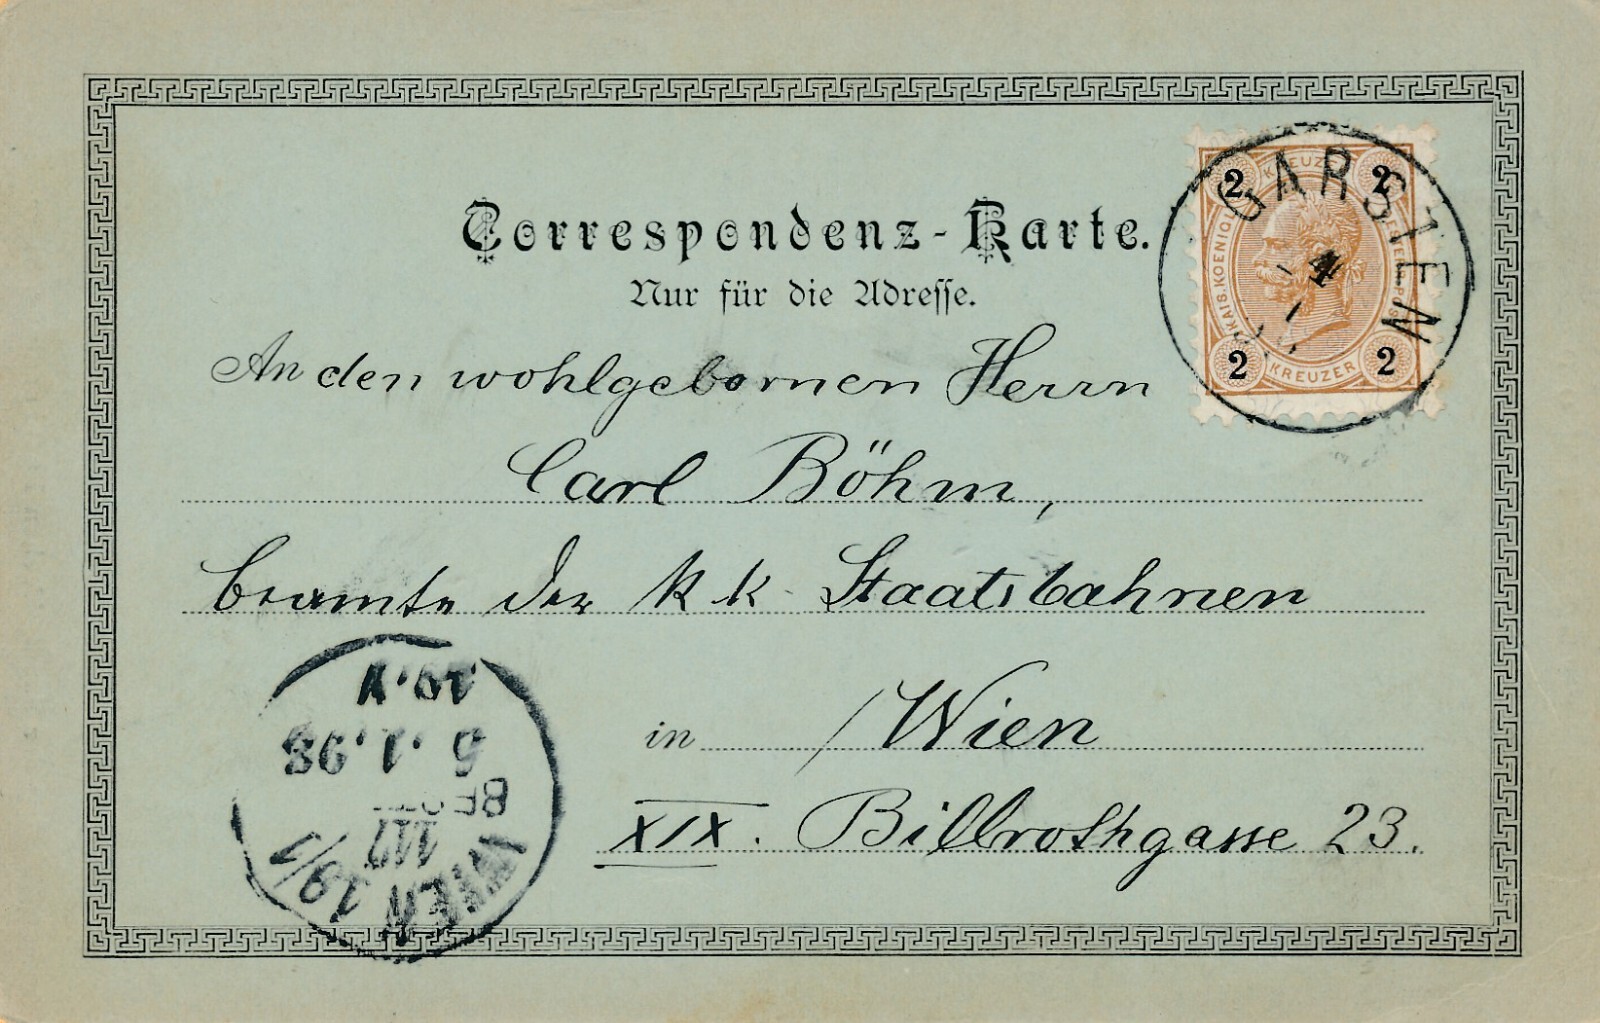 Correspondenz-Karte.
Nur für die Adresse.
An den wohlgebornen Herrn
Carl Böhm,
beamte der k k Staatsbahnen
in Wien
XIX. Billrothgasse 23.
KREUZER
2 2
KAIS. KOENIGL.
2 2
KREUZER
GARSTEN
WIEN 19/1
117
BEST
5.1.98